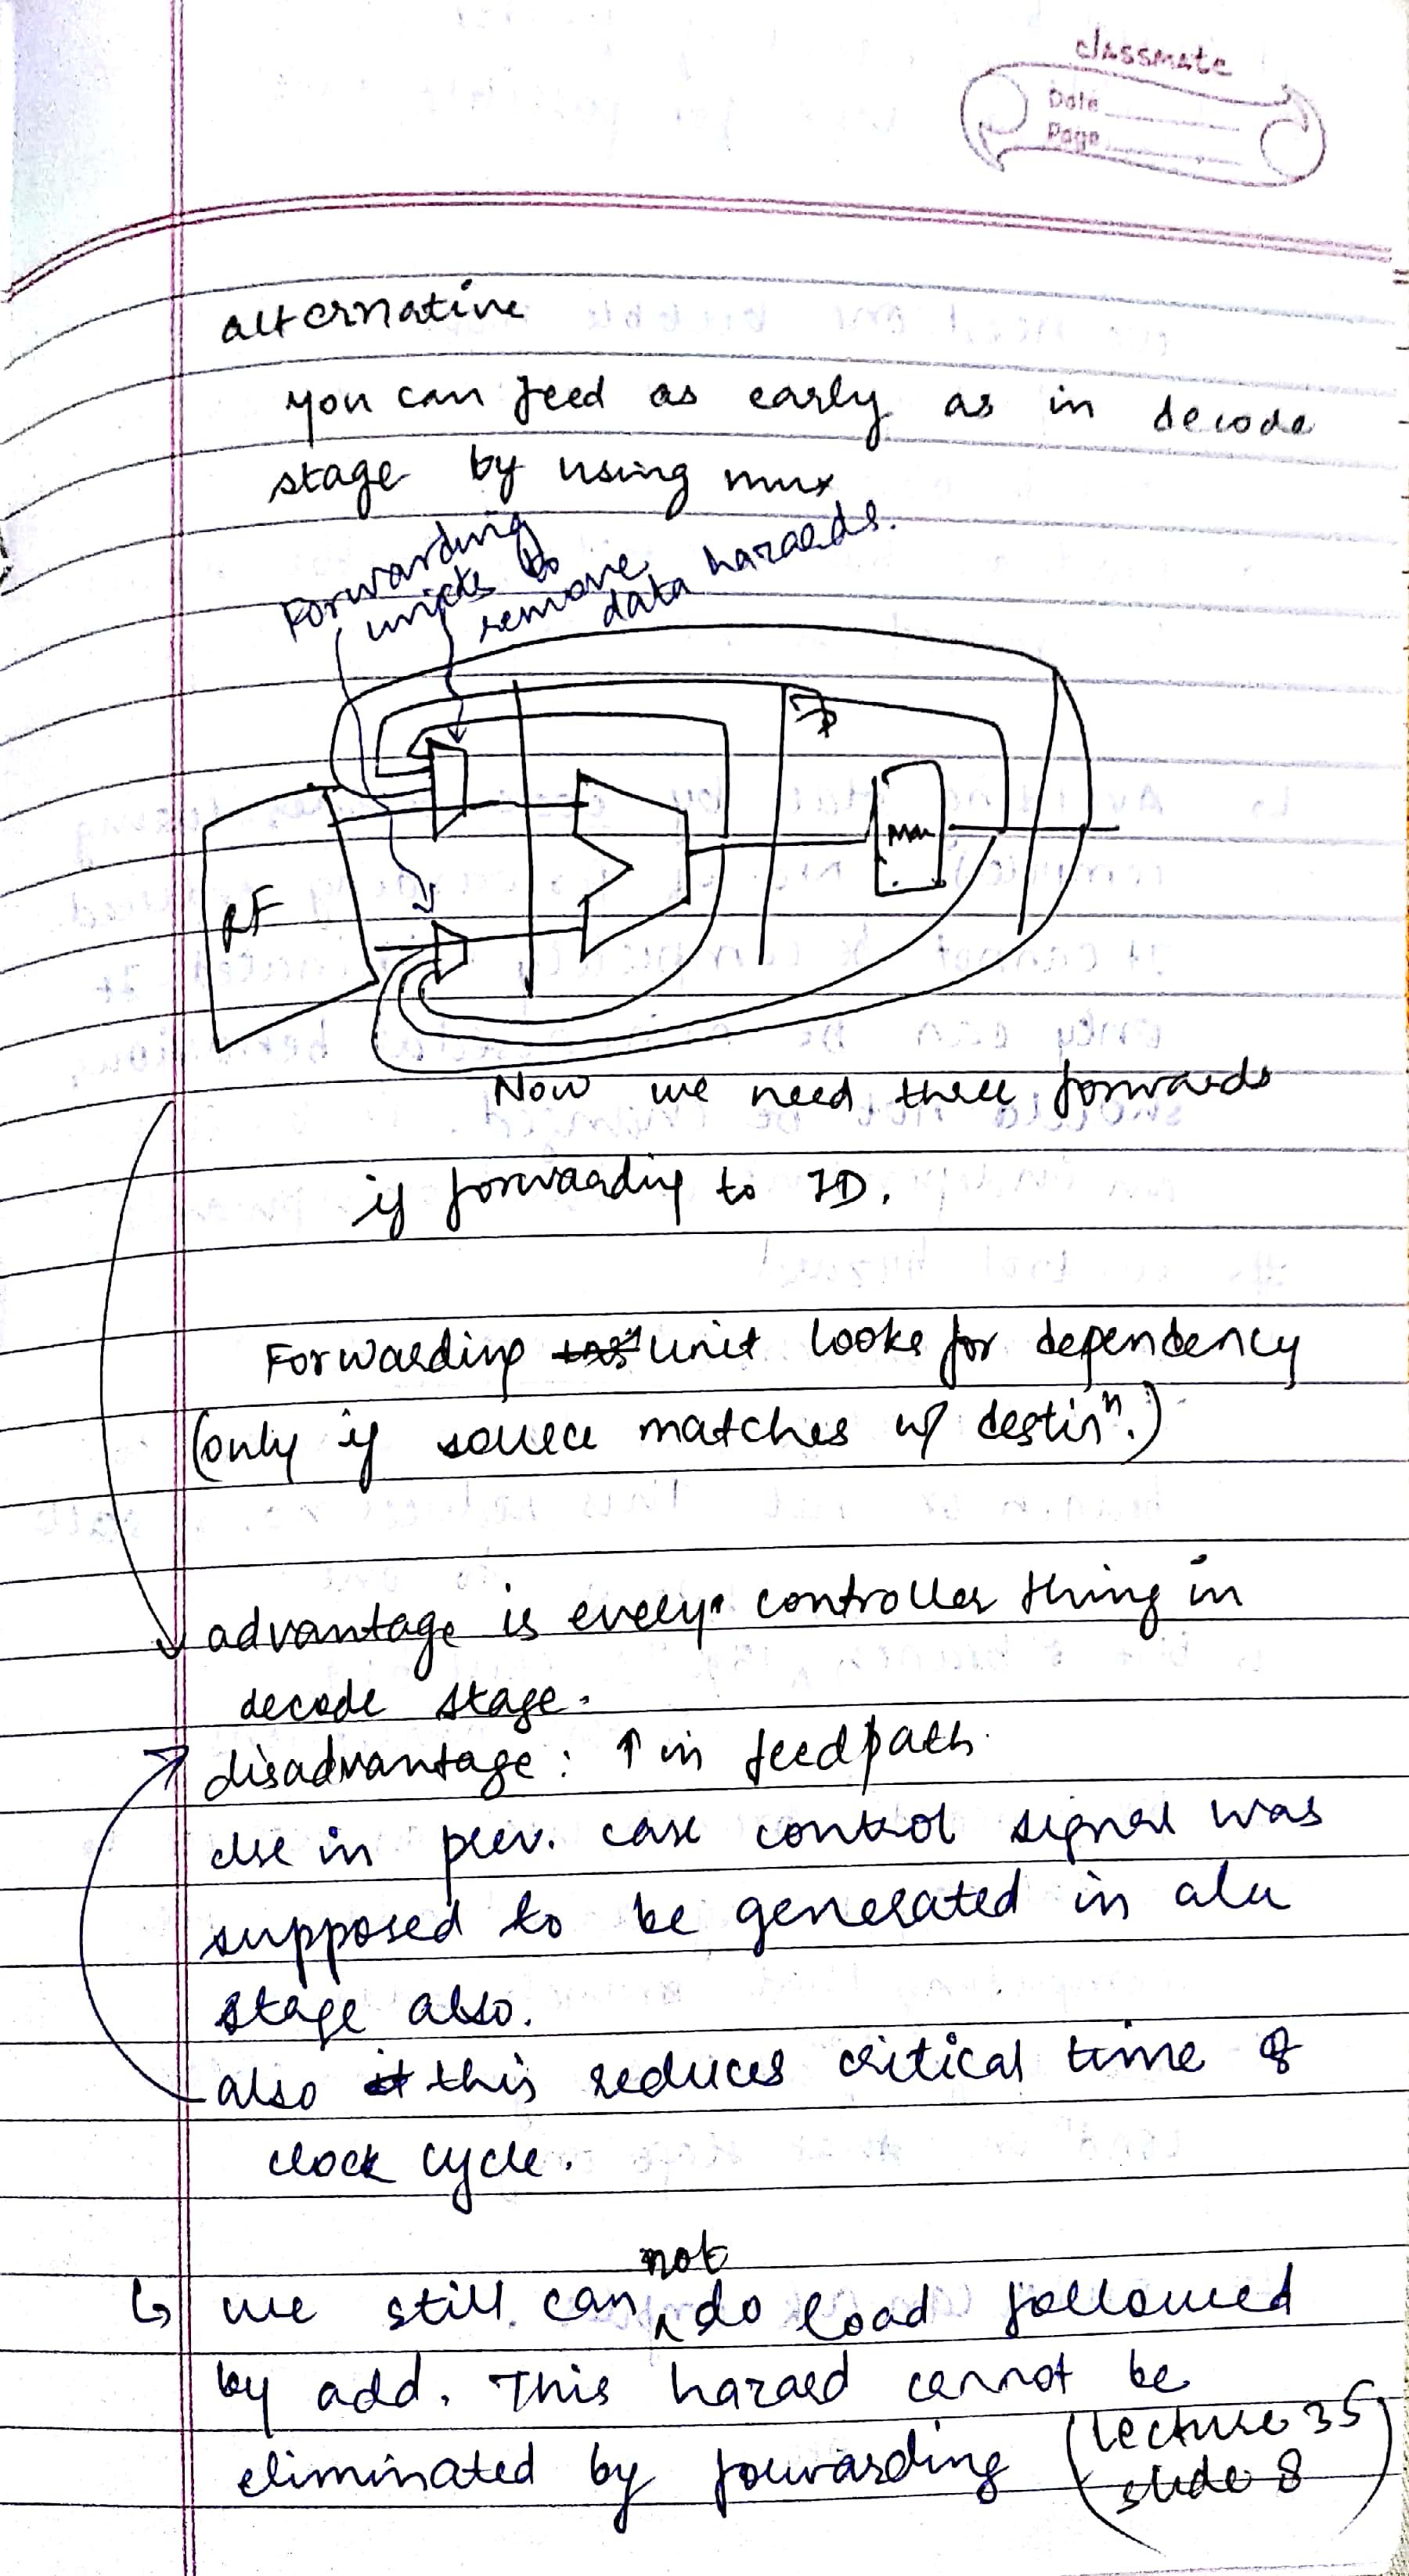 classmate
Date
Page
alternative
you can feed as early as in decode
stage by using mux
Forwarding
units to
remove
data hazards.
RF
Mem
Now we need three forwards
if forwarding to ID.
Forwarding unit looks for dependency
(only if source matches w/ destinⁿ.)
advantage is every controller thing in
decode stage.
disadvantage: ↑ in feedpath.
else in prev. case control signal was
supposed to be generated in alu
stage also.
also this reduces critical time of
clock cycle.
↳ we still can not do load followed
by add. This hazard cannot be
eliminated by forwarding (Lecture 35
slide 8)